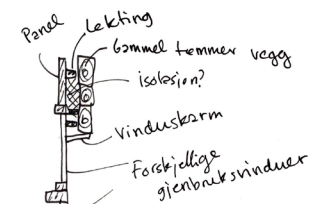 Panel
Lekting
Gammel tømmer vegg
isolasjon?
Vinduskarm
Forskjellige
gjenbruksvinduer